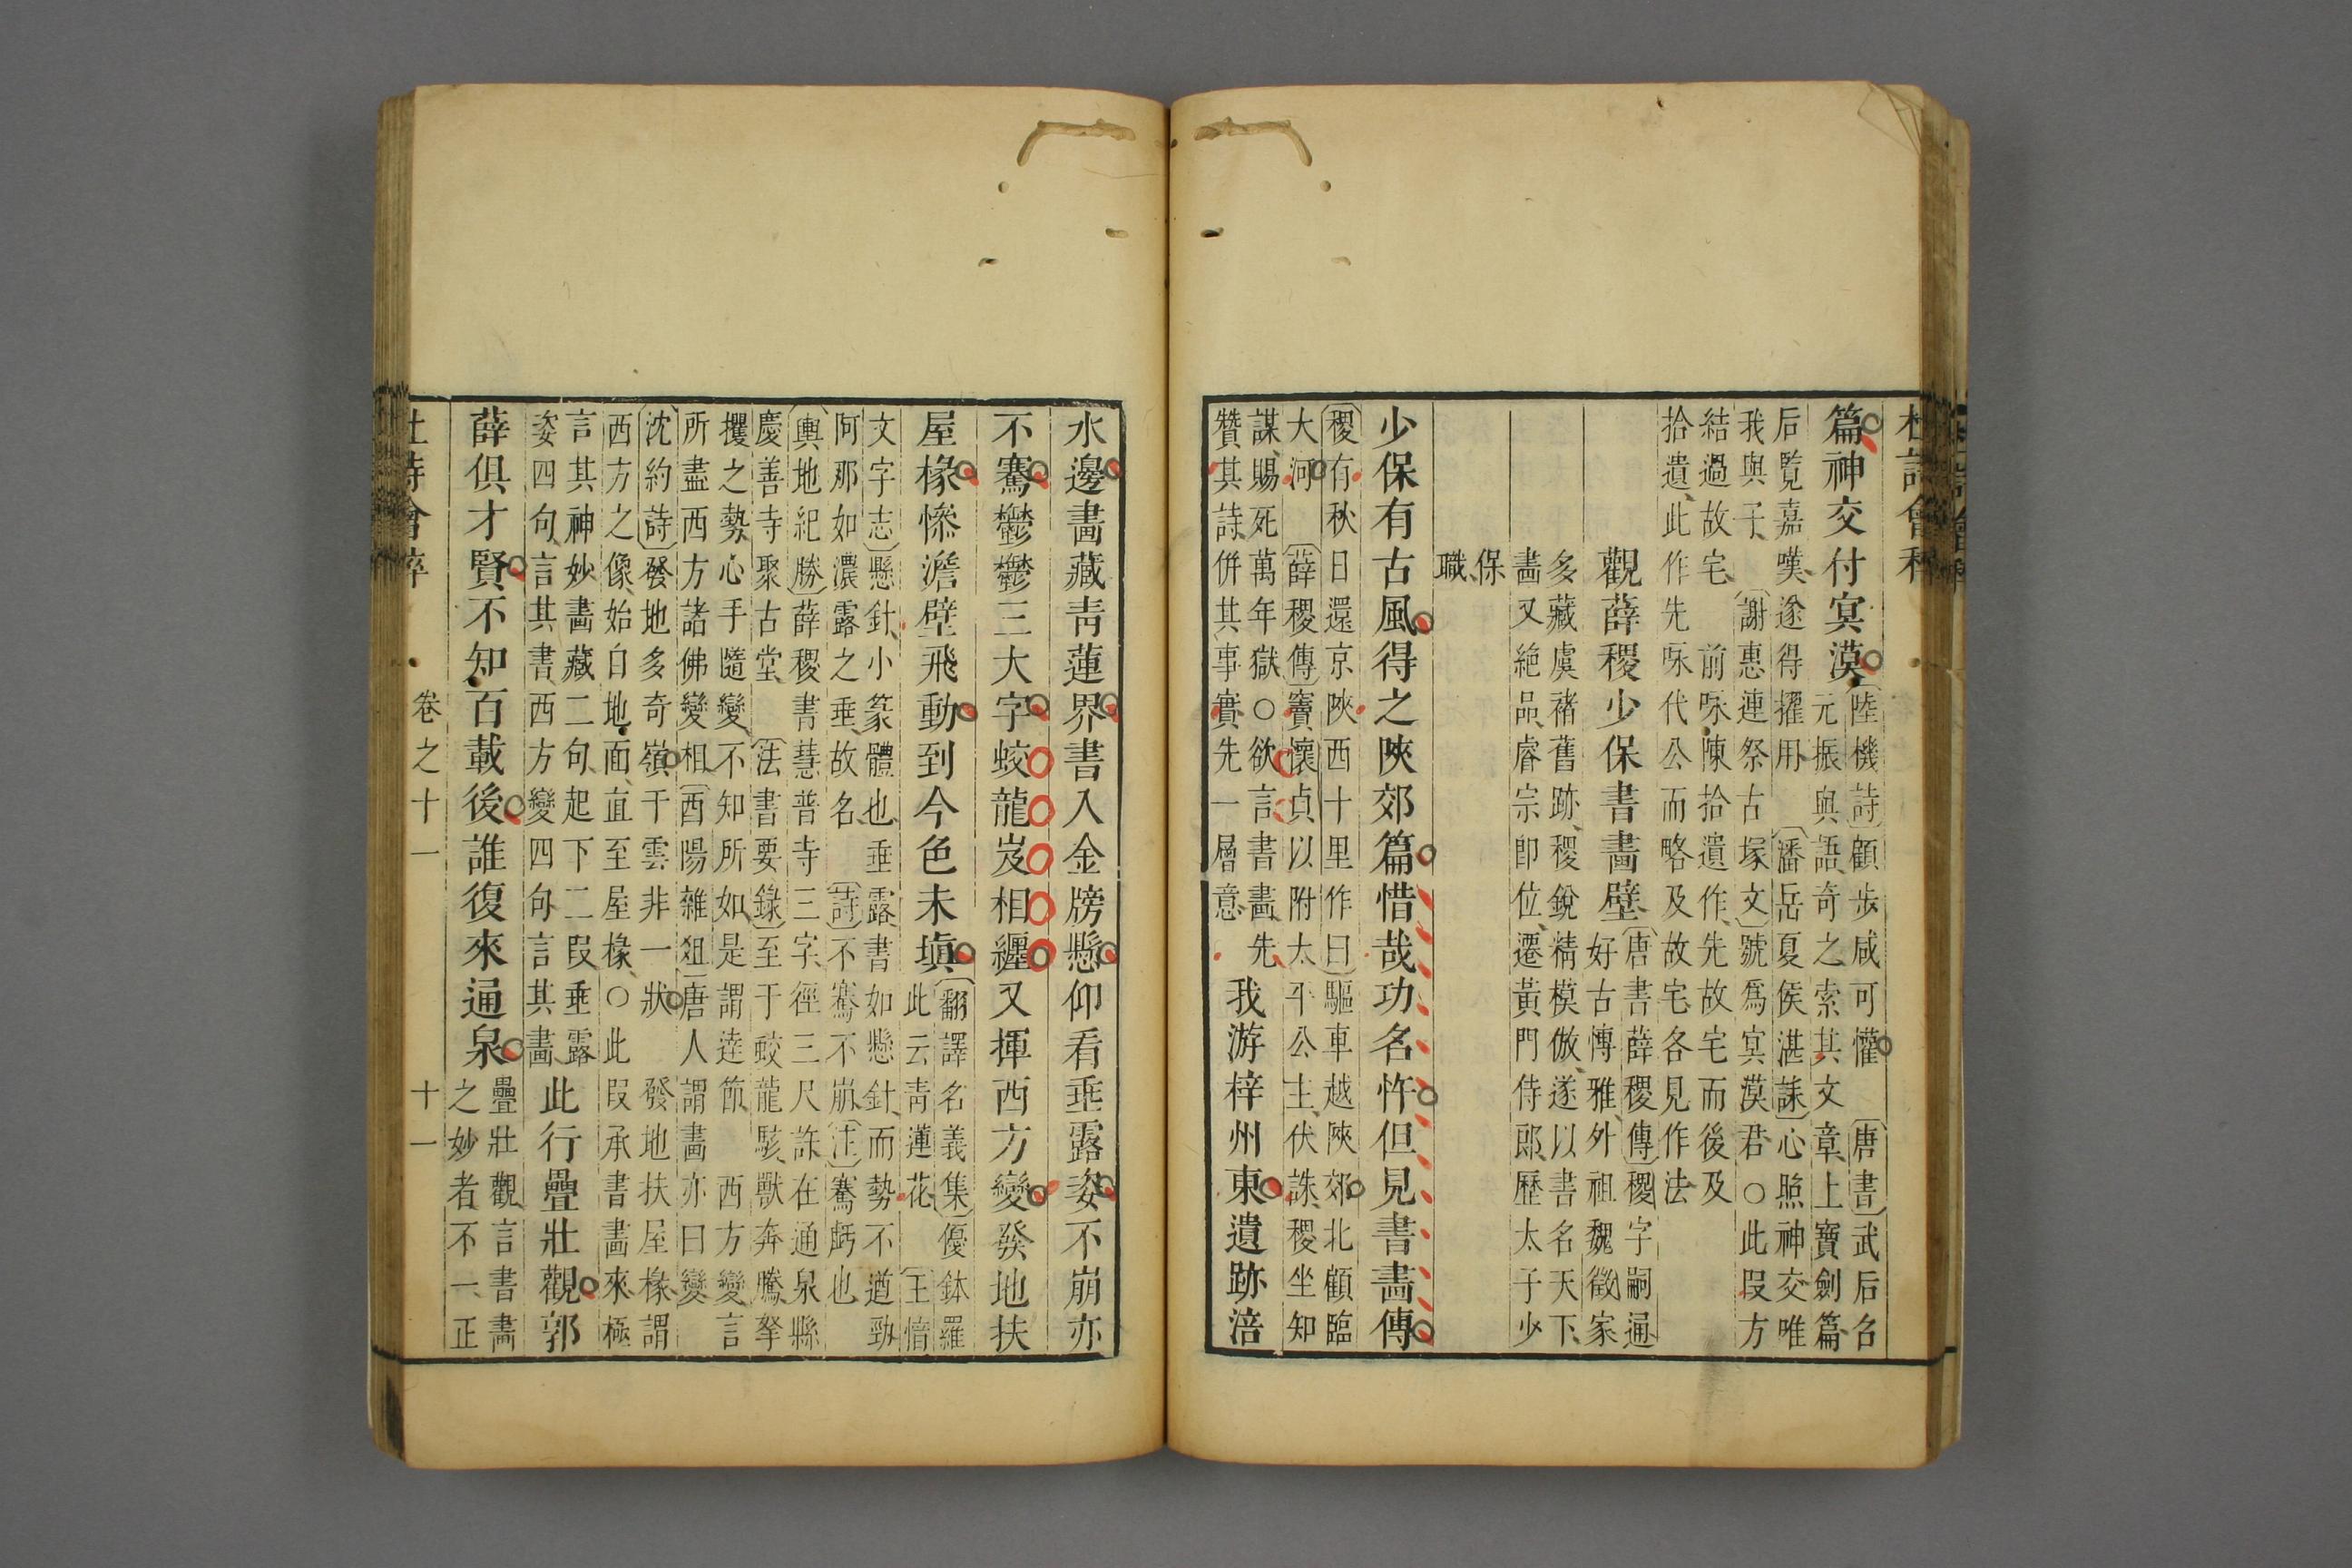 杜詩會稡
篇神交付冥漠
陸機詩顧歩咸可懽 唐書武后召
元振與語奇之索其文章上寶劍篇
后覽嘉嘆遂得擢用 潘岳夏侯湛誄心照神交唯
我與子 謝惠連祭古塚文號爲冥漠君○此叚方
結過故宅 前𠰸陳拾遺作先故宅而後及
拾遺此作先𠰸代公而略及故宅各見作法
觀薛稷少保書畫壁
唐書薛稷傳稷字嗣通
好古愽雅外祖魏徵家
多藏虞褚舊跡稷銳精模倣遂以書名天下
畵又絶品睿宗卽位遷黃門侍郎歷太子少
保
職
少保有古風得之陝郊篇惜哉功名忤但見書畵傳
稷有秋日還京陝西十里作曰驅車越陝郊北顧臨
大河 薛稷傳竇懷貞以附太平公主伏誅稷坐知
謀賜死萬年獄○欲言書畫先
贊其詩併其事實先一層意
我游梓州東遺跡涪
水邊畵藏青蓮界書入金牓懸仰看垂露姿不崩亦
不騫鬱鬱三大字蛟龍岌相纏又揮西方變發地扶
屋椽慘澹壁飛動到今色未塡
翻譯名義集優鉢羅
此云青蓮花 王愔
文字志懸針小篆體也垂露書如懸針而勢不遒勁
阿那如濃露之垂故名 詩不騫不崩注騫虧也
輿地紀勝薛稷書慧普寺三字徑三尺許在通泉縣
慶善寺聚古堂 法書要錄至于蛟龍駭獸奔騰拏
攫之勢心手隨變不知所如是謂達節 西方變言
所盡西方諸佛變相酉陽雜俎唐人謂畵亦曰變
沈約詩發地多奇嶺干雲非一狀 發地扶屋椽謂
西方之像始自地面直至屋椽○此叚承書畵來極
言其神妙畵藏二句起下二叚垂露
姿四句言其書西方變四句言其畵
此行疊壯觀郭
薛俱才賢不知百載後誰復來通泉
疊壯觀言書畵
之妙者不一正
杜詩會稡
卷之十一
十一